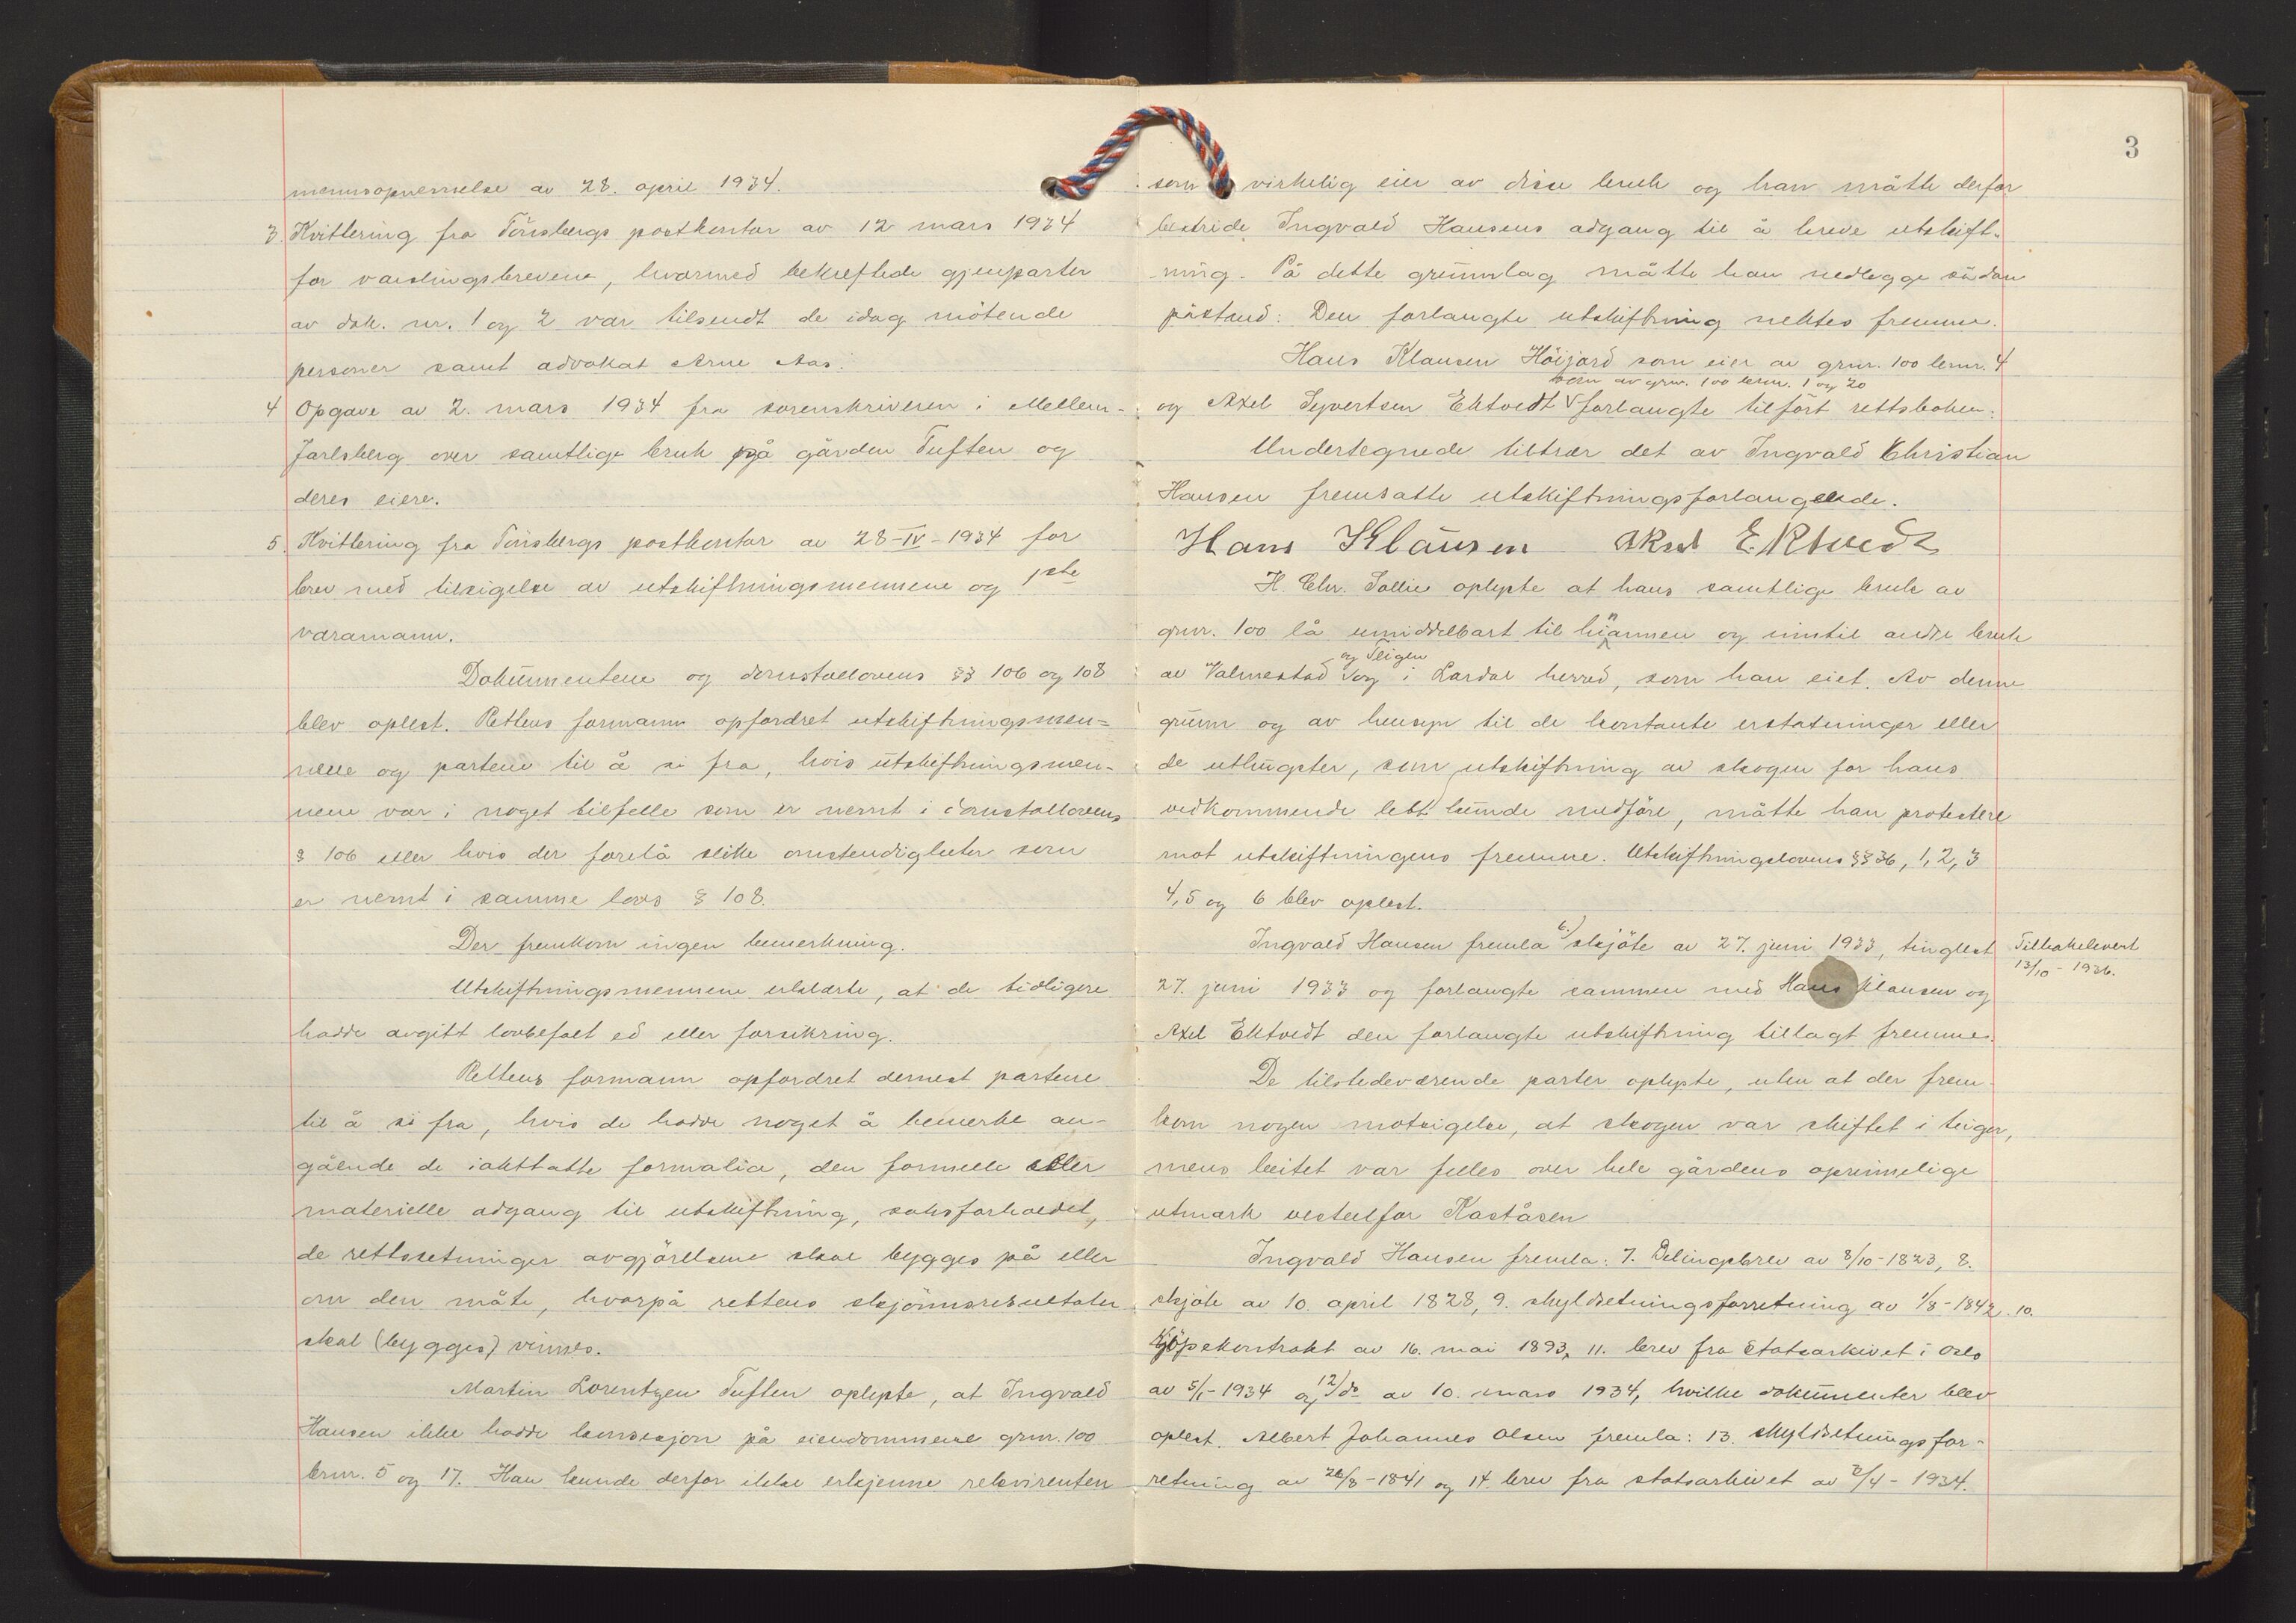 mennsopnevnelse av 28. april 1934.
3. Kvittering fra Tönsbergs postkontor av 12 mars 1934
for varslingsbrevene, hvormed bekreftede gjenparter
av dok. nr. 1 og 2 var tilsendt de idag mötende
personer samt advokat Arne Aas.
4 Opgave av 2. mars 1934 fra sorenskriveren i Mellem-
Jarlsberg over samtlige bruk på gården Tuften og
deres eiere.
5. Kvittering fra Tönsbergs postkontor av 28-IV-1934 for
brev med tilsigelse av utskiftningsmennene og 1ste
varamann.
Dokumentene og domstollovens §§ 106 og 108
blev oplest. Rettens formann opfordret utskiftningsmen=
nene og partene til å si fra, hvis utskiftningsmen-
nene var i noget tilfelle som er nevnt i domstollovens
§ 106 eller hvis der forelå slike omstendigheter som
er nevnt i samme lovs § 108.
Der fremkom ingen bemerkning.
Utskiftningsmennene erklærte, at de tidligere
hadde avgitt lovbefalt ed eller forsikring.
Rettens formann opfordret dernest partene
til å si fra, hvis de hadde noget å bemerke an-
gående de iakttatte formalia, den formelle eller
materielle adgang til utskiftning, saksforholdet,
de rettssetninger avgjörelsene skal bygges på eller
om den måte, hvorpå rettens skjönnsresultater
skal (bygges) vinnes.
Martin Lorentzen Tuften oplyste, at Ingvald
Hansen ikke hadde konsesjon på eiendommene grnr. 100
brnr. 5 og 17. Han kunde derfor ikke erkjenne rekvirenten
3
som virkelig eier av disse bruk og han måtte derfor
bestride Ingvald Hansens adgang til å kreve utskift-
ning. På dette grunnlag måtte han nedlegge sådan
påstand: Den forlangte utskiftning nektes fremme.
Hans Klausen Höijord som eier av grnr. 100 brnr. 4
som av grnr. 100 brnr. 1 og 20
og Axel Syvertsen Ektvedt forlangte tilfört rettsboken:
Undertegnede tiltrær det av Ingvald Christian
Hansen fremsatte utskiftningsforlangende.
Hans Klausen Aksel Ektvedt
H. Chr. Sollie oplyste at hans samtlige bruk av
grnr. 100 lå umiddelbart til hinannen og inntil andre bruk
og Teigen
av Valmestad og i Lardal herred, som han eiet. Av denne
grunn og av hensyn til de kontante erstatninger eller
de utlingster, som utskiftning av skogen for hans
vedkommende lett kunde medföre, måtte han protestere
mot utskiftningens fremme. Utskiftningslovens §§ 36, 1, 2, 3
4, 5 og 6 blev oplest.
Ingvald Hansen fremla 6) skjöte av 27. juni 1933, tinglest
Tilbakelevert
13/10 - 1936.
27. juni 1933 og forlangte sammen med Hans Klausen og
Axel Ektvedt den forlangte utskiftning tillagt fremme.
De tilstedeværende parter oplyste, uten at der frem-
kom nogen motsigelse, at skogen var skiftet i teiger,
mens beitet var felles over hele gårdens oprinnelige
utmark vestenfor Kaståsen
Ingvald Hansen fremla: 7. Delingsbrev av 8/10-1823, 8.
skjöte av 10. april 1828, 9. skyldsetningsforretning av 1/8-1842, 10.
Kjöpekontrakt av 16. mai 1893, 11. brev fra Statsarkivet i Oslo
av 5/1-1934 og 12) do av 10. mars 1934, hvilke dokumenter blev
oplest. Albert Johannes Olsen fremla: 13. skyldsetningsfor-
retning av 26/8-1841 og 14. brev fra statsarkivet av 3/4-1934.